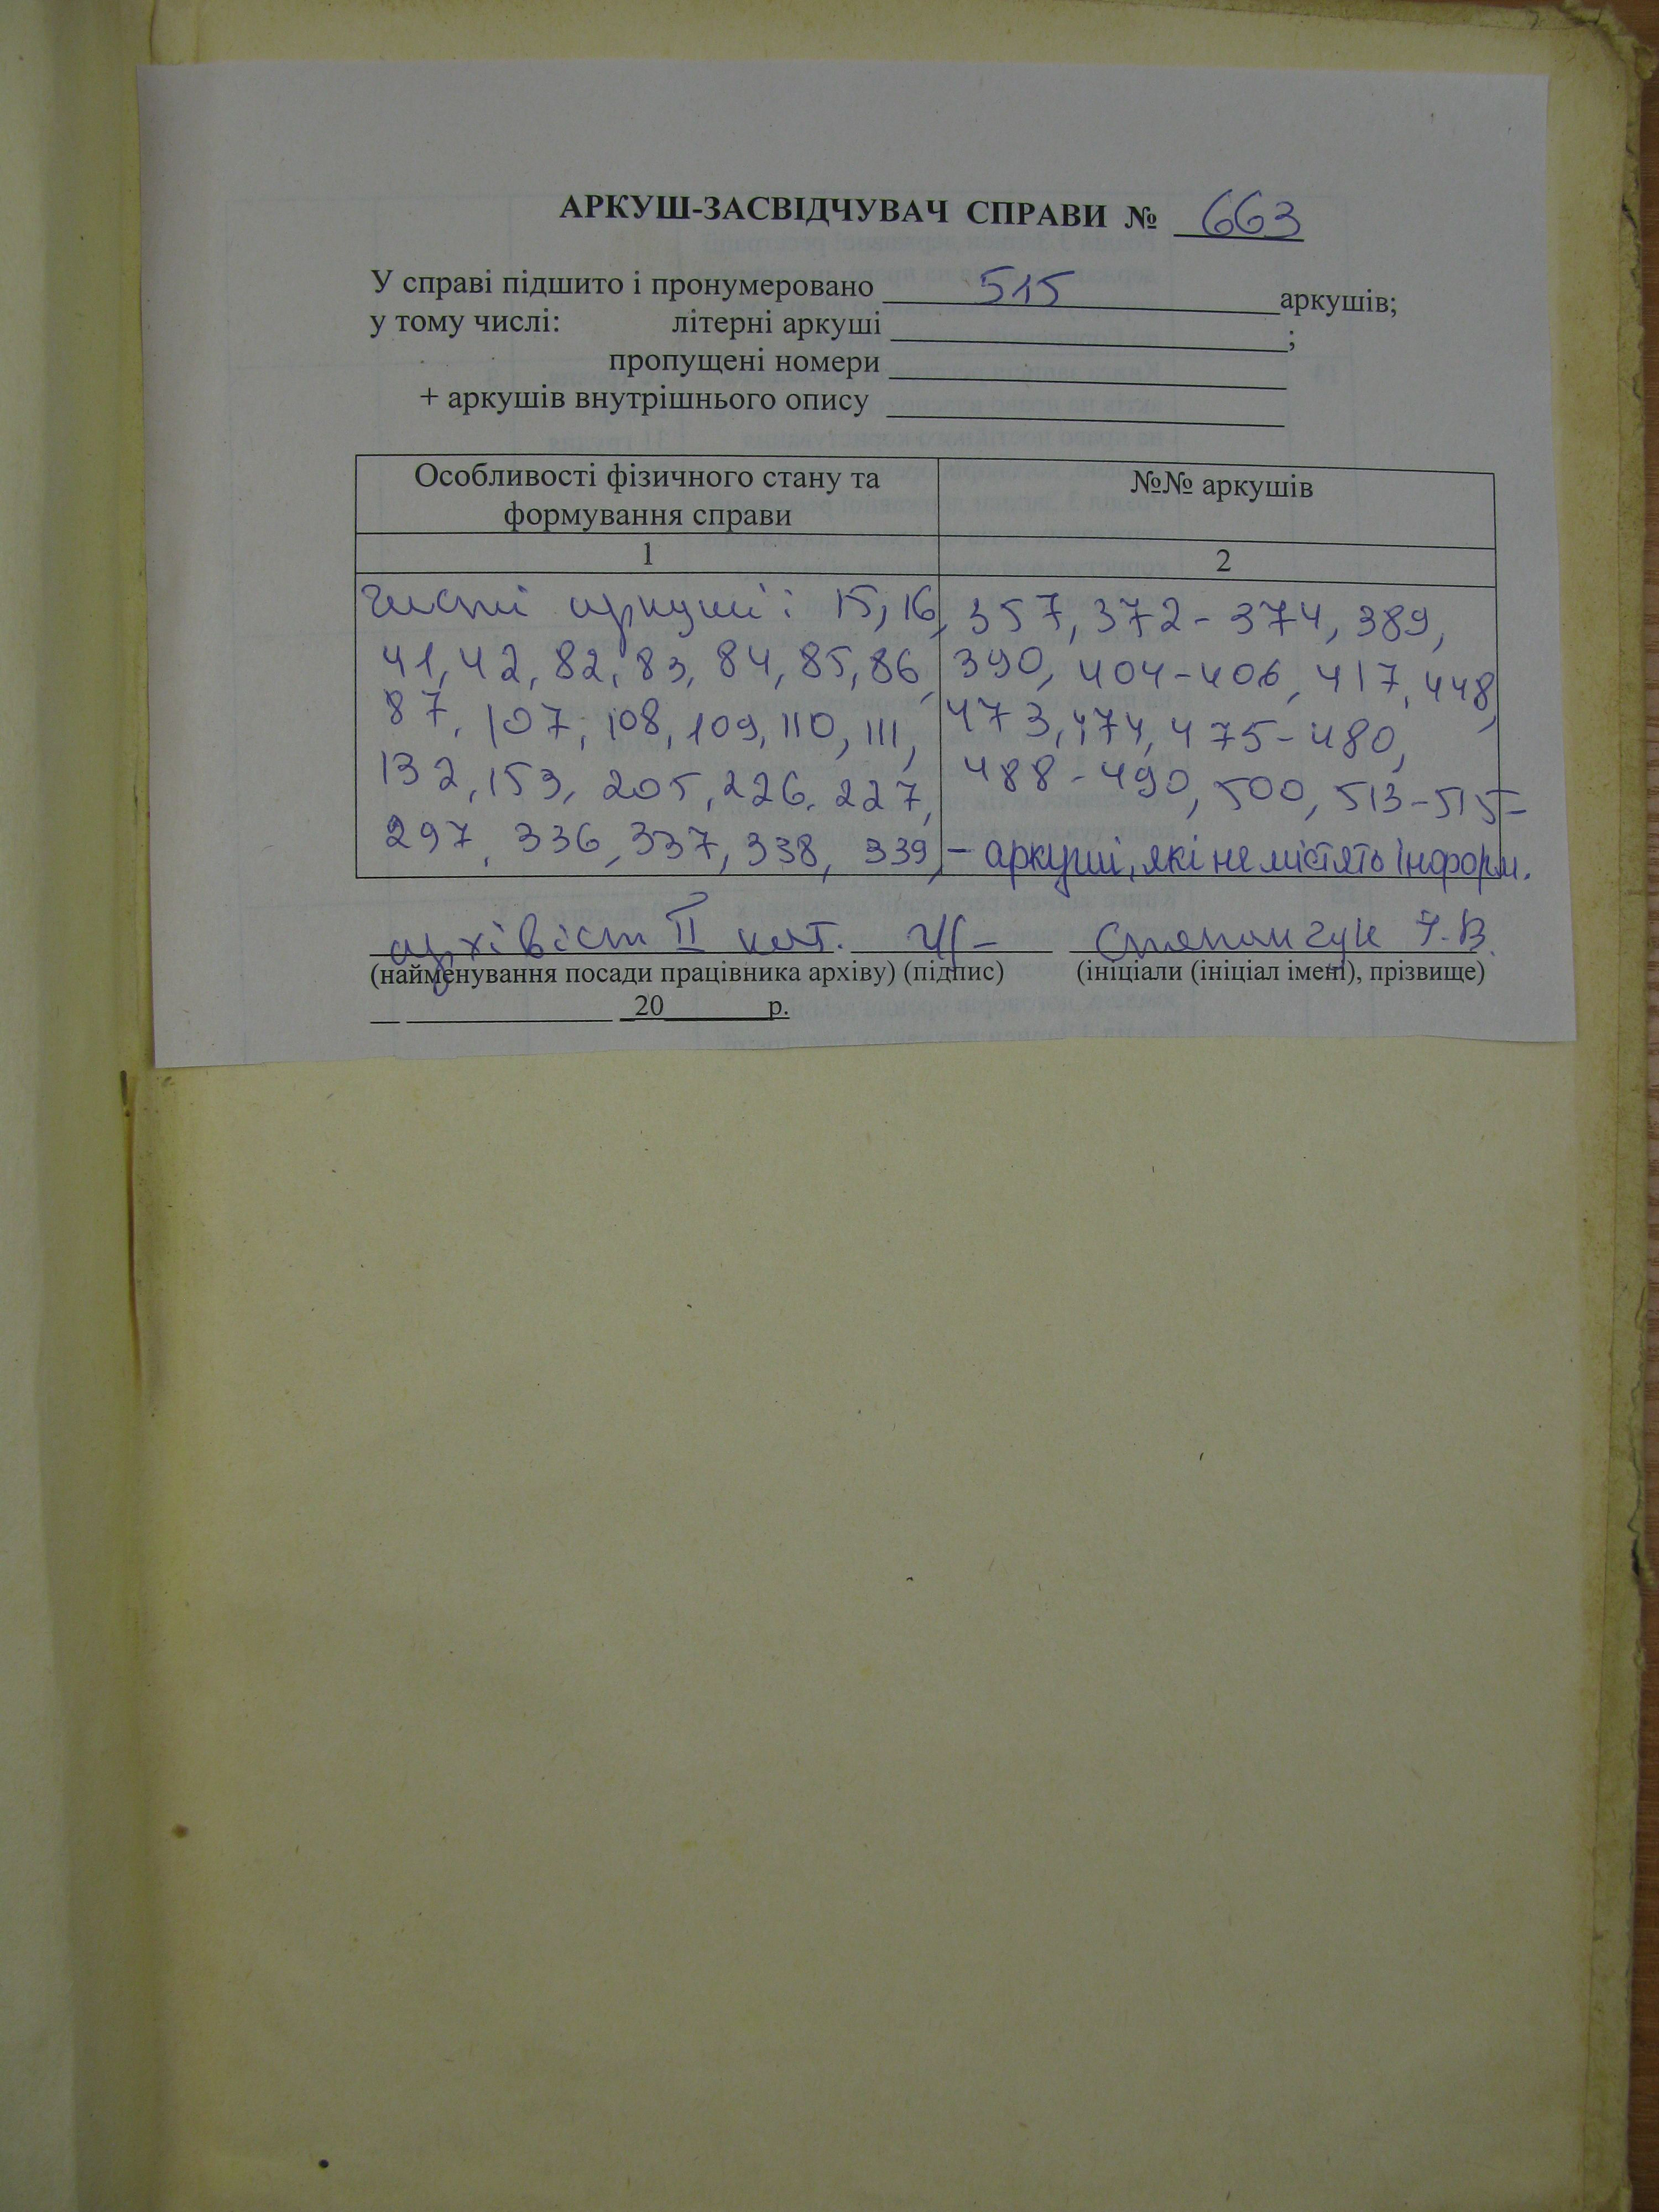 АРКУШ-ЗАСВІДЧУВАЧ СПРАВИ № 663
У справі підшито і пронумеровано 515 аркушів;
у тому числі: літерні аркуші ;
пропущені номери
+ аркушів внутрішнього опису
Особливості фізичного стану та формування справи
№№ аркушів
1
2
чисті аркуші: 15, 16,
41, 42, 82, 83, 84, 85, 86,
87, 107, 108, 109, 110, 111,
132, 153, 205, 226, 227,
297, 336, 337, 338, 339,
357, 372-374, 389,
390, 404-406, 417, 448,
473, 474, 475-480,
488-490, 500, 513-515-
- аркуші, які не містять інформ.
архівіст II кат. Степанчук
(найменування посади працівника архіву) (підпис) (ініціали (ініціал імені), прізвище)
20 р.